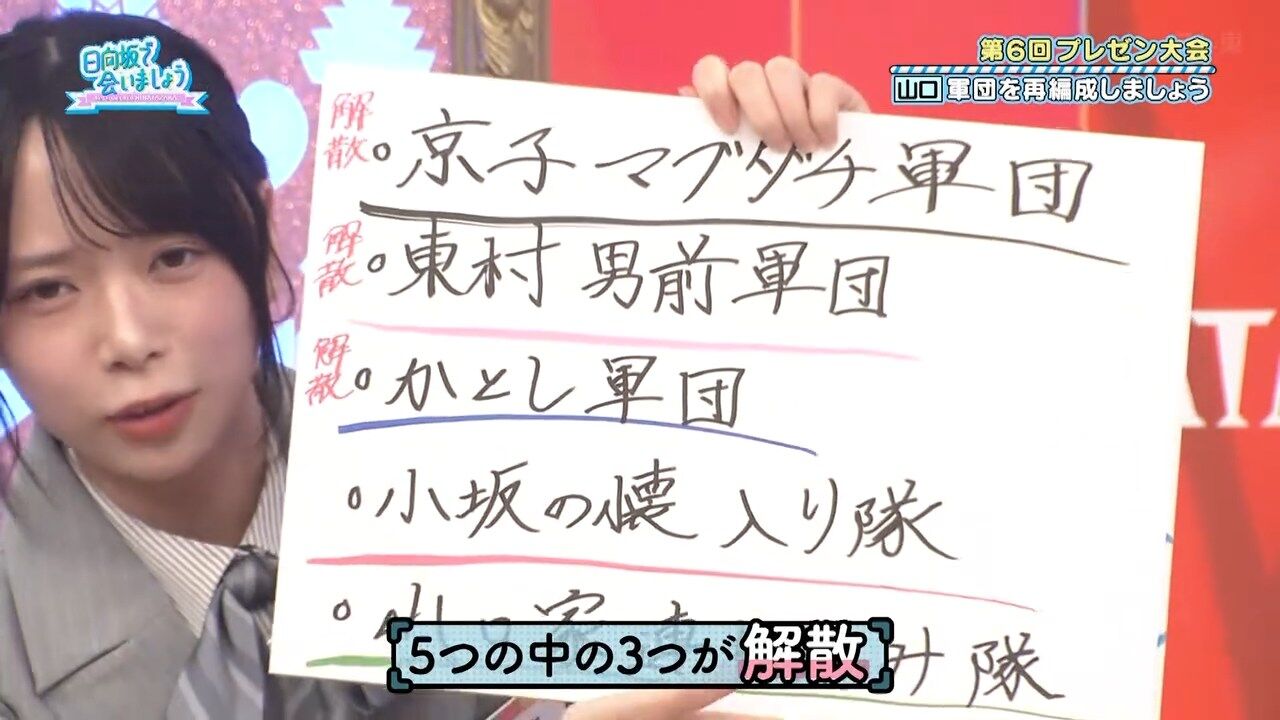 日向坂で
会いましょう
第6回プレゼン大会
山口 軍団を再編成しましょう
解散 ○京子マブダチ軍団
解散 ○東村 男前軍団
解散 ○かとし軍団
○小坂の懐入り隊
隊
5つの中の3つが解散